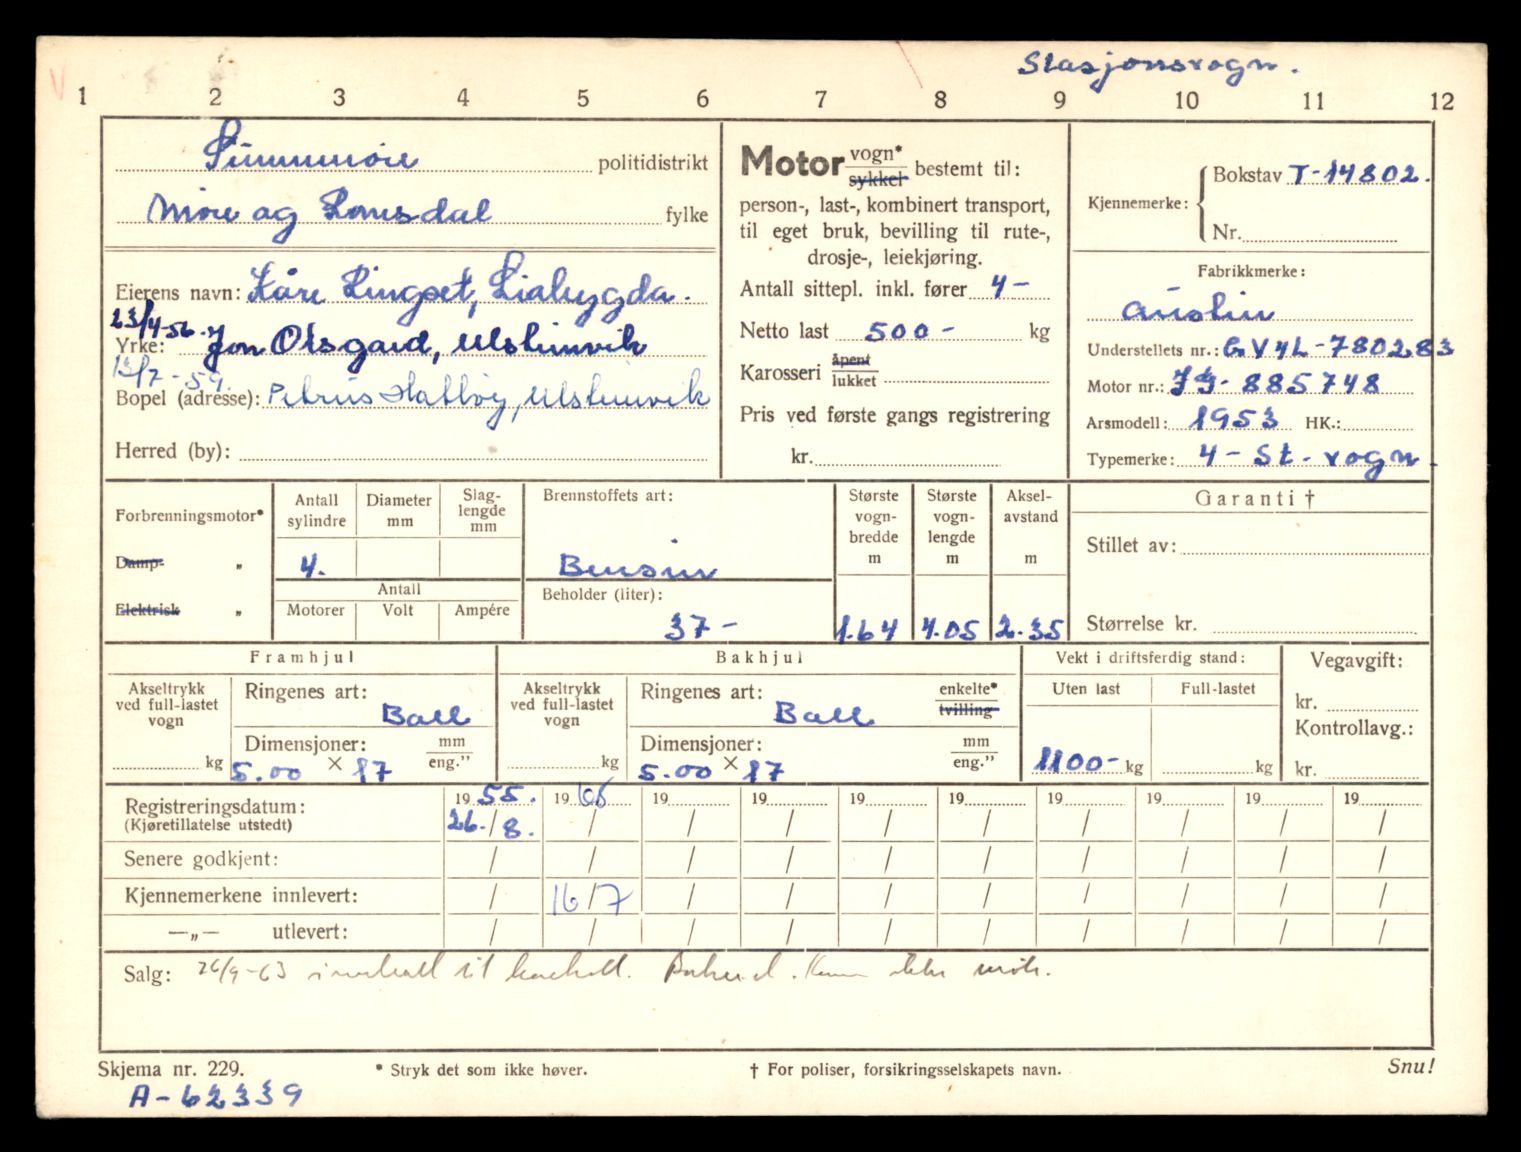 Stasjonsvogn.
1 2 3 4 5 6 7 8 9 10 11 12
Sunnmøre politidistrikt
Møre og Romsdal fylke
Eierens navn: Kåre Ringset, Liabygda.
23/4-56. Jon Osgard, Ulsteinvik
Yrke:
13/7-59. Petrus Hatløy, Ulsteinvik
Bopel (adresse):
Herred (by):
Motor vogn* sykkel bestemt til:
person-, last-, kombinert transport,
til eget bruk, bevilling til rute-,
drosje-, leiekjøring.
Antall sittepl. inkl. fører 4-
Netto last 500- kg
Karosseri åpent lukket
Pris ved første gangs registrering
kr.
Kjennemerke: Bokstav T-14802.
Nr.
Fabrikkmerke:
Austin
Understellets nr.: GV4L-780283
Motor nr.: JG-885748
Årsmodell: 1953 HK.:
Typemerke: 4-St.vogn.
Forbrenningsmotor*
Damp- „
Elektrisk „
Antall sylindre Diameter mm Slaglengde mm
4.
Antall
Motorer Volt Ampére
Brennstoffets art:
Bensin
Beholder (liter):
37-
Største vognbredde m
1.64
Største vognlengde m
4.05
Akselavstand m
2.35
Garanti †
Stillet av:
Størrelse kr.
Framhjul
Akseltrykk ved full-lastet vogn
kg
Ringenes art:
Ball
Dimensjoner: mm eng."
5.00 × 17
Bakhjul
Akseltrykk ved full-lastet vogn
kg
Ringenes art: enkelte* tvilling
Ball
Dimensjoner: mm eng."
5.00 × 17
Vekt i driftsferdig stand:
Uten last Full-lastet
1100- kg kg
Vegavgift:
kr.
Kontrollavg.:
kr.
Registreringsdatum: 1955. 1966 19 19 19 19 19 19 19 19
(Kjøretillatelse utstedt) 26./8. / / / / / / / / /
Senere godkjent: / / / / / / / / / /
Kjennemerkene innlevert: / 16/7 / / / / / / / /
—„— utlevert: / / / / / / / / / /
Salg: 26/9-63
Skjema nr. 229. * Stryk det som ikke høver. † For poliser, forsikringsselskapets navn. Snu!
A-62339